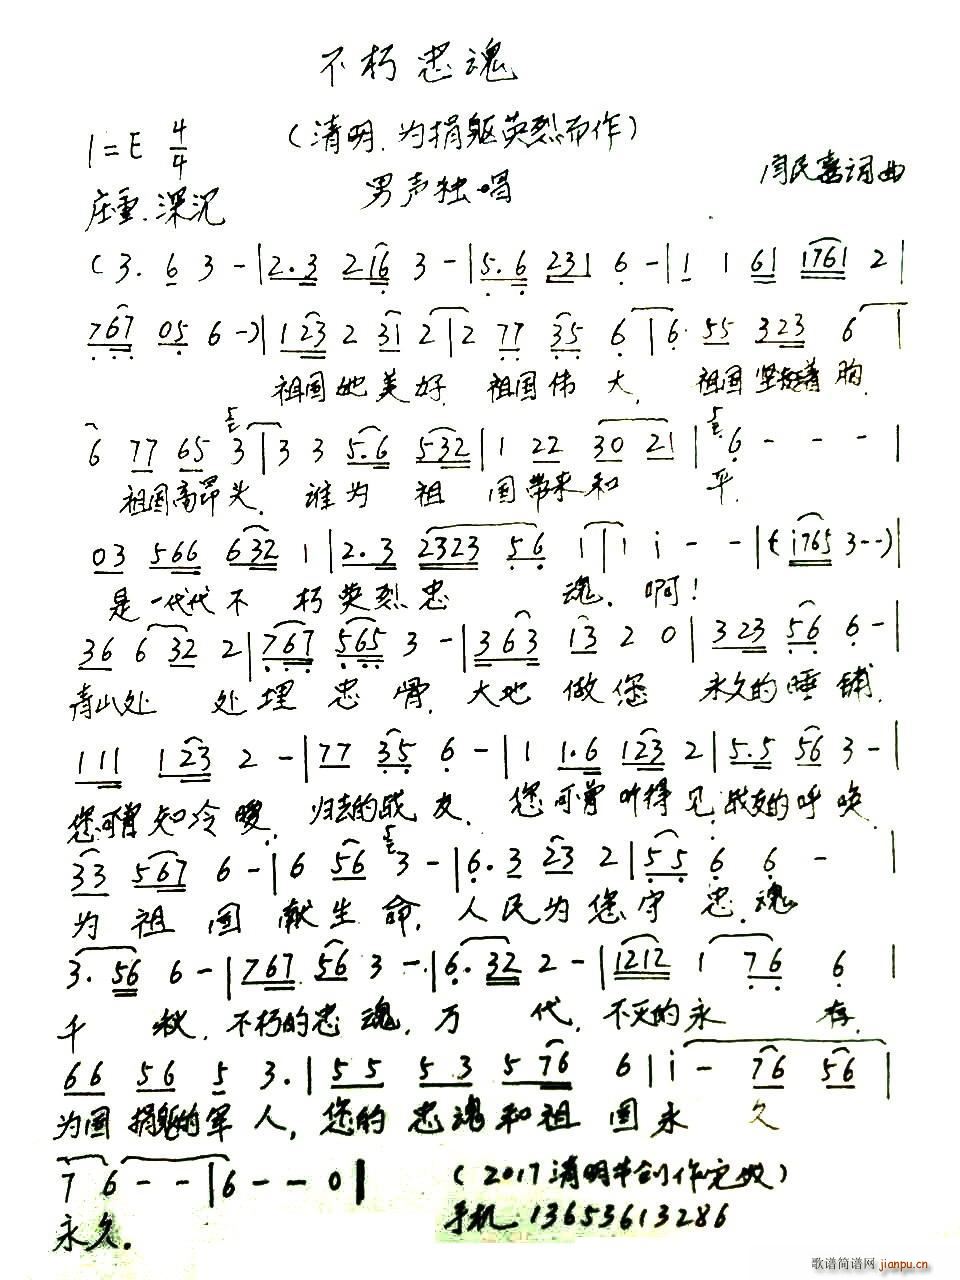 不朽忠魂
(清明.为捐躯英烈而作)
1=E 4/4
男声独唱
闫民喜词曲
庄重.深沉
(3. 6 3 - | 2.3 216 3 - | 5.6 231 6 - | 1 1 61 1761 2 |
767 05 6 -) | 123 2 31 2 | 2 77 35 6 | 6. 55 323 6 |
祖国她美好 祖国伟大, 祖国坚挺着胸
6 77 65 3 | 3 3 5.6 532 | 1 22 30 21 | 6 - - - |
祖国高昂头. 谁为祖国带来和平.
03 566 632 1 | 2.3 2323 56 i | i i - - | (i765 3--) |
是一代代不朽英烈忠魂. 啊!
36 6 32 2 | 767 565 3 - | 363 13 2 0 | 323 56 6 - |
青山处处埋忠骨. 大地做您永久的睡铺.
111 123 2 - | 77 35 6 - | 1 1.6 123 2 | 5.5 56 3 - |
您可曾知冷暖. 归去的战友. 您可曾听得见战友的呼唤.
33 567 6 - | 6 56 3 - | 6.3 23 2 | 55 6 6 - |
为祖国献生命, 人民为您守忠魂
3.56 6 - | 767 56 3 - | 6.32 2 - | 1212 1 76 6 |
千秋. 不朽的忠魂, 万代, 不灭的永存.
66 56 5 3. | 55 53 576 6 | i - 76 56 |
为国捐躯的军人, 您的忠魂和祖国永久
7 6 - - | 6 - - 0 |
永久.
(2017清明节创作完毕)
手机 13653613286
歌谱简谱网 jianpu.cn